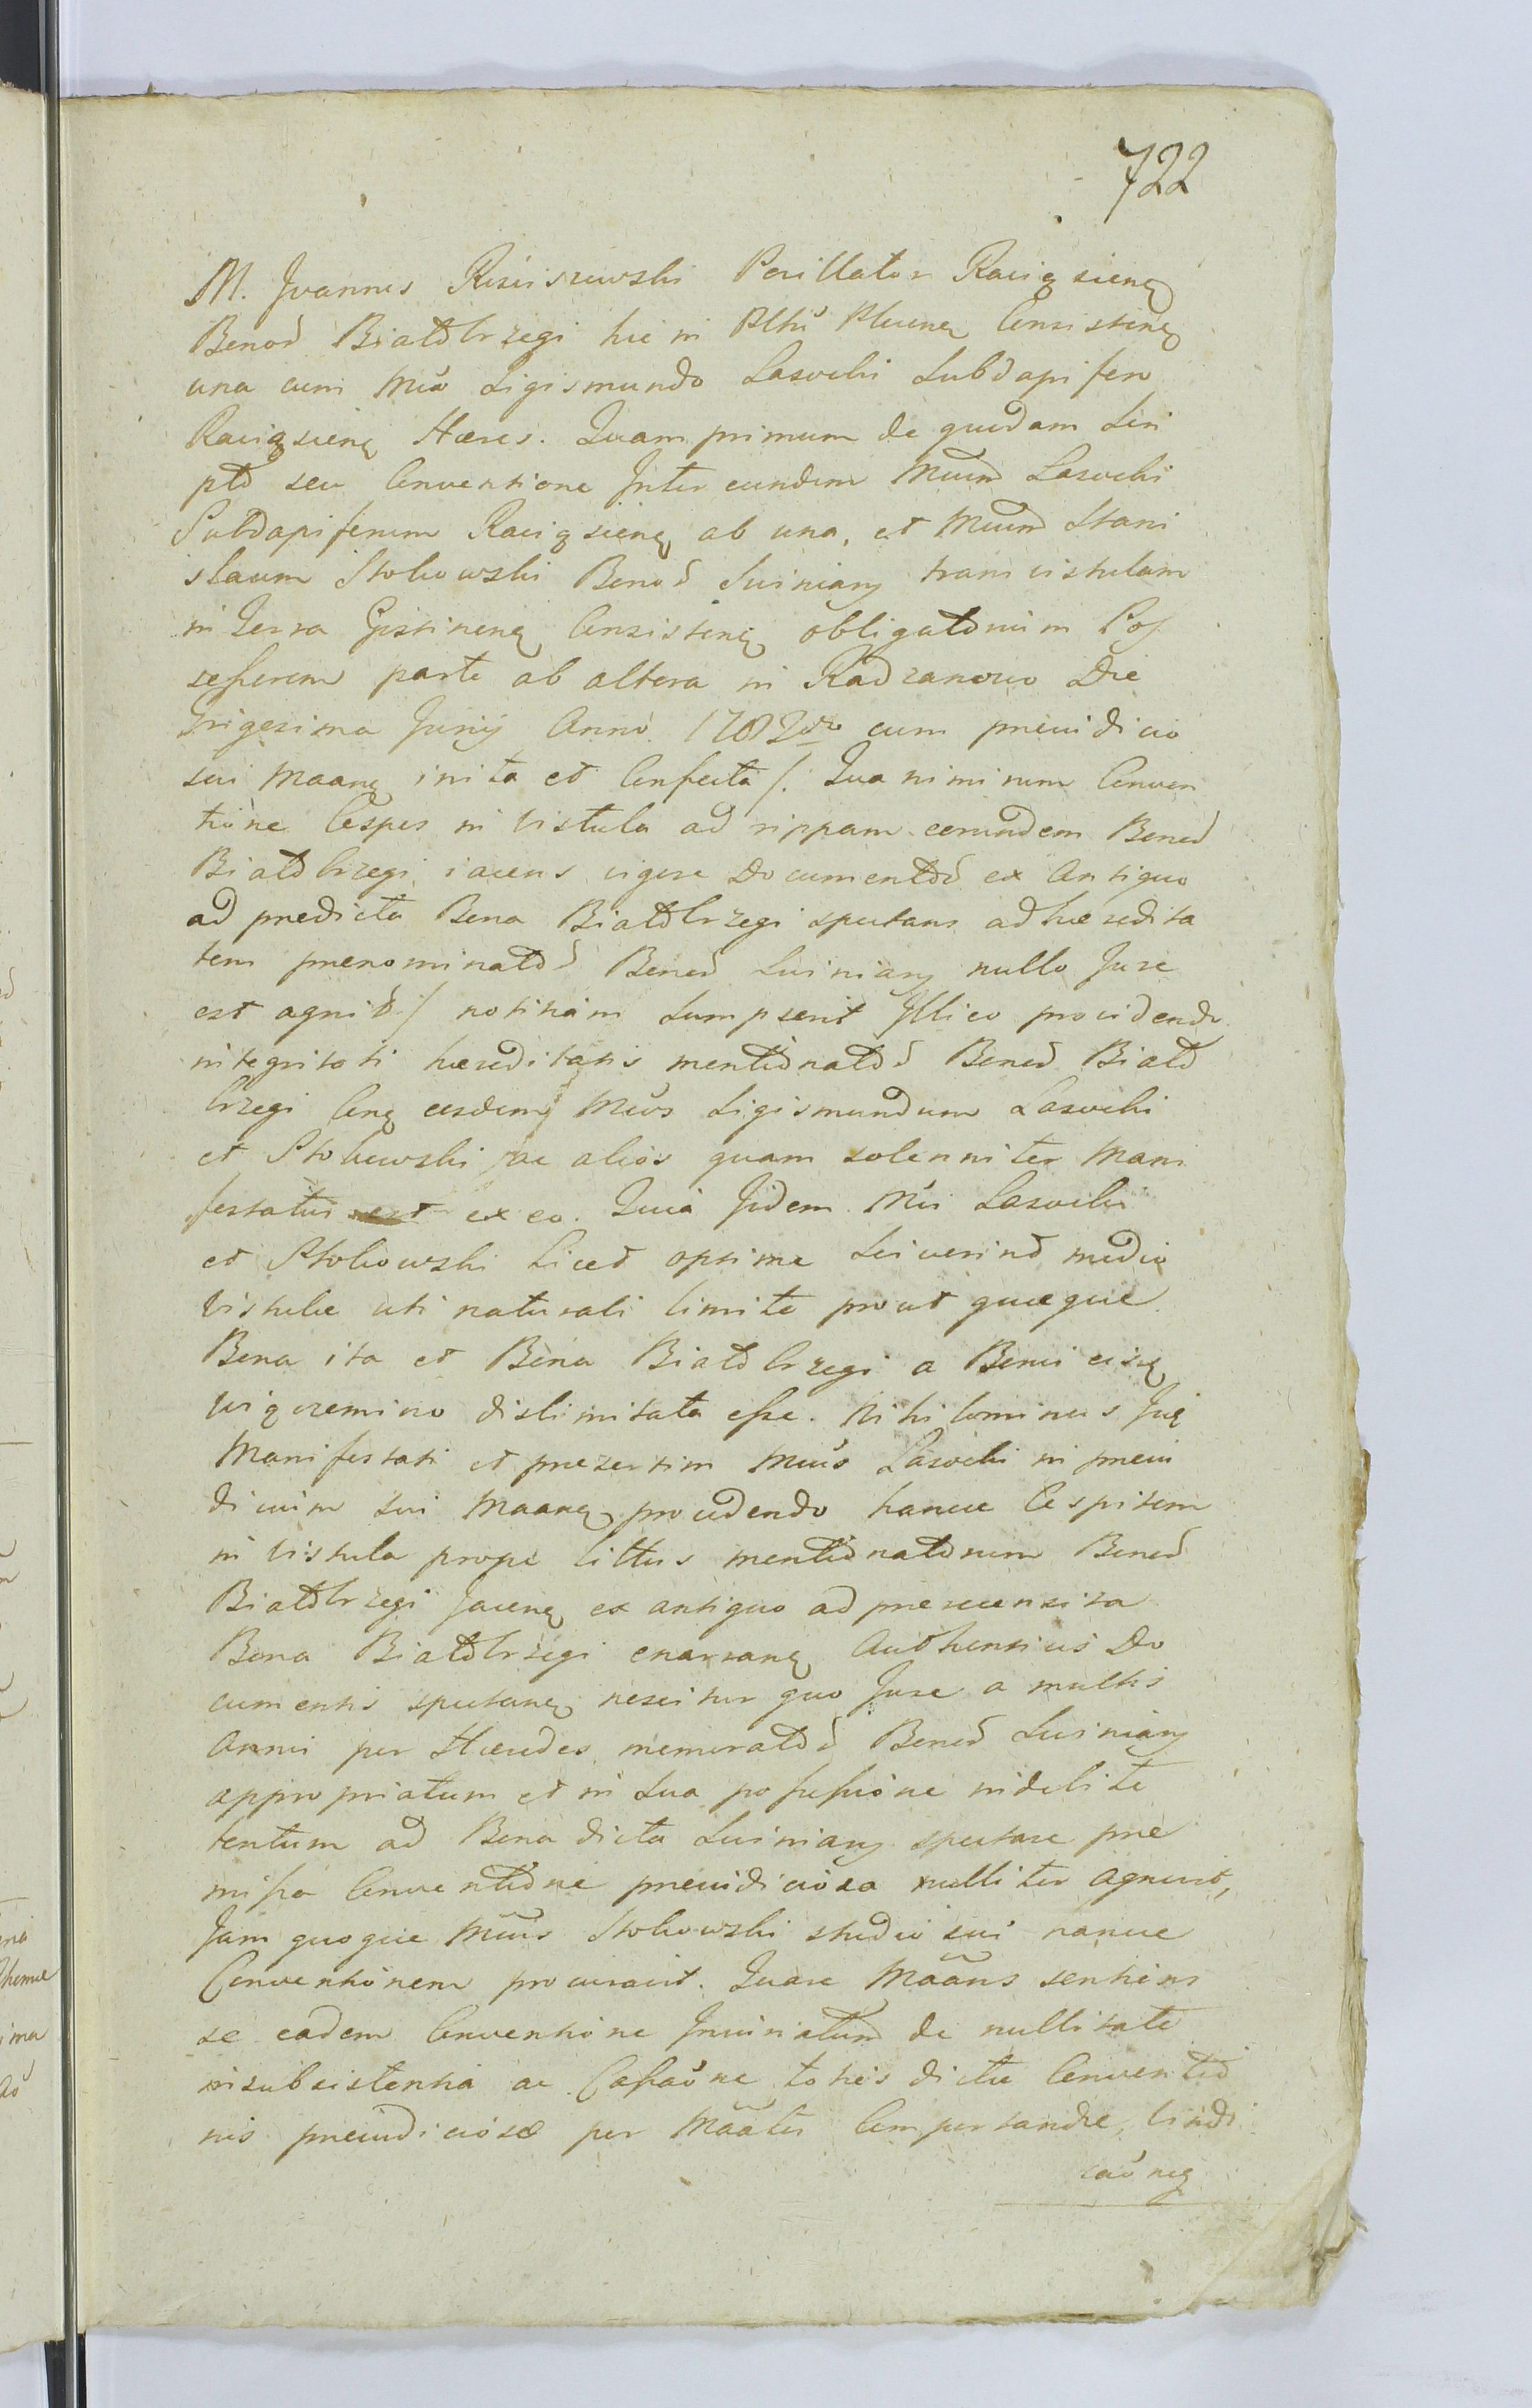 722
M. Joannes Kisiiszewski Pocillator Raciąsienę
Bonoȓ Białobrzegi hic in Plłtu Płocenę Consistenę
una cum Mco Sigismundo Lasocki Subdapifero
Raciąsienę Hæres. Quam primum de quodam Scri
pto seu Conventione Inter eundem Mcum Lasocki
Subdapiferum Raciąsienę ab una, et Mcum Stani
slaum Stokowski Bonoȓ Swiniary trans vistulam
in Terra Gostinenę Consistenę obligatorium Pos
sessorem parte ab altera in Radzanowo Die
Trigesima Junij Anno 1782do cum preiudicio
sui Maanę inita et Confecta /. Qua nimirum Conven
tione Cespes in Vistula ad rippam eorundem Bonoȓ
Białobrzegi iacens vigore Documentoȓ ex Antiquo
ad predicta Bona Białobrzegi spectans ad hæredita
tem prenominatoȓ Bonoȓ Swiniary nullo Jure
est agnit9 / notitiam Sumpserit Illico providendo
integritati hæreditatis mentionatoȓ Bonoȓ Biało
brzegi Conę eosdem Mcos Sigismundum Lasocki
et Stokowski ac alios quam solenniter Mani
festatus est ex eo. Quia Iidem Mci Lasocki
et Stokowski Licet optime Sciverint medio
Vistulæ uti naturali limite prout quæque
Bona ita et Bona Białobrzegi a Bonis eisę
vigoremino dislimitata esse. Nihilominus Ijdę
Manifestati et presertim Mcus Lasocki in preiu
dicium sui Maanę procedendo hancce Cespitem
in Vistula prope littus mentionatorum Bonoȓ
Białobrzegi Jacenę ex antiquo ad prerecensita
Bona Białobrzegi enarranę Authenticis Do
cumentis spectanę nescitur quo Jure a multis
Annis per Hæredes memoratoȓ Bonoȓ Swiniary
appropriatum et in Sua possessione indebite
tentum ad Bona dicta Swiniary spectare pre
missa Conventione preiudiciosa nulliter agnovit,
Jam quoque Mcus Stokowski studio sui hancce
Conventionem procuravit. Quare Maans sentiens
se eadem Conventione Iniuriatum de nullitate
insubsistentia ac Cassaone toties dictæ Conventio
nis preiudiciosæ per Maatos Comportandæ, vindi
caonię